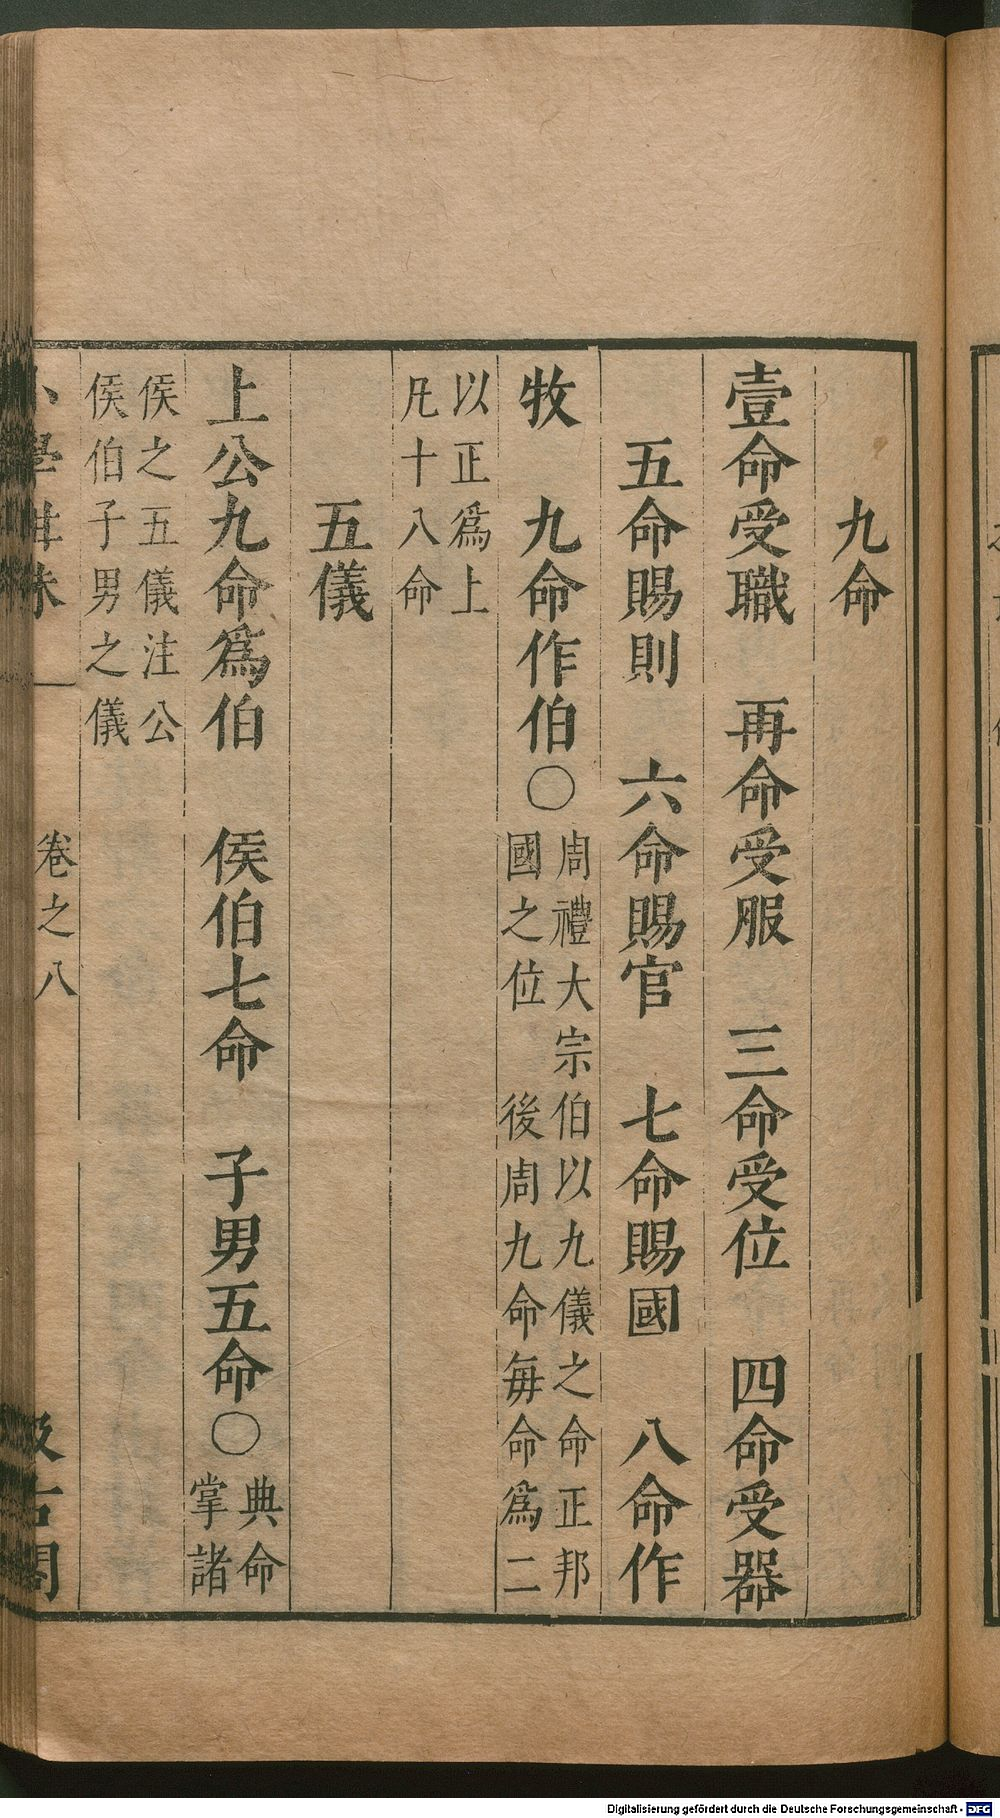 九命
壹命受職　再命受服　三命受位　四命受器
五命賜則　六命賜官　七命賜國　八命作
牧　九命作伯○周禮大宗伯以九儀之命正邦
國之位　後周九命每命爲二
以正爲上
凡十八命
五儀
上公九命爲伯　侯伯七命　子男五命○典命
掌諸
侯之五儀注公
侯伯子男之儀
卷之八
Digitalisierung gefördert durch die Deutsche Forschungsgemeinschaft - DFG